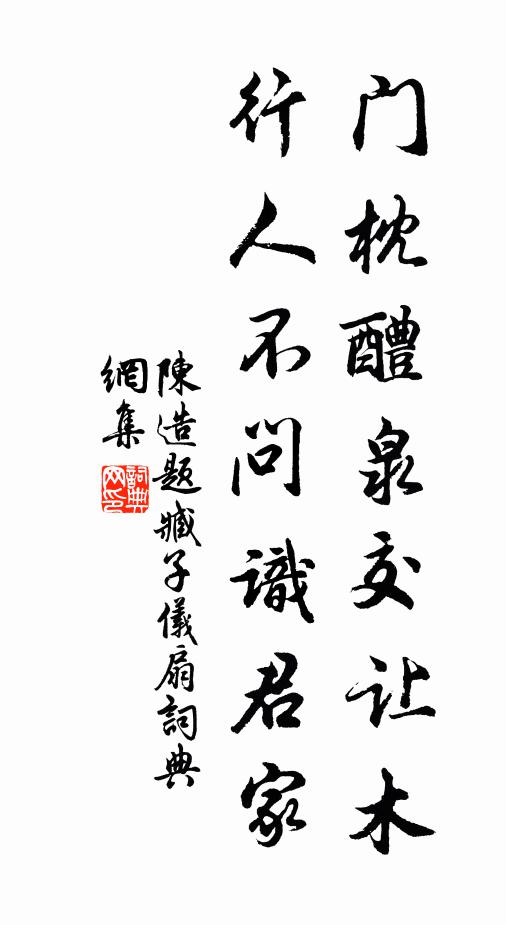 门枕醴泉交让木
行人不问識君家
陳造题臧子儀扇詞典
網集
詞典
网印